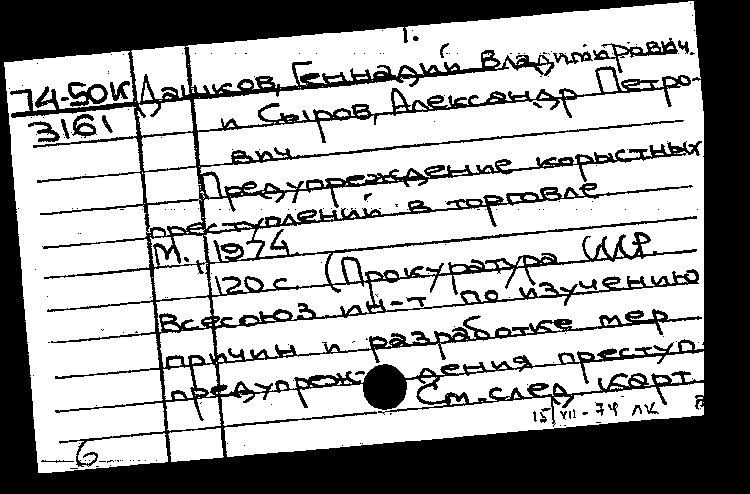 1.
74-50к Дашков, Геннадий Владимирович.
3161 и Сыров, Александр Петро-
вич
Предупреждение корыстных
преступлений в торговле
М., 1974
120 с. (Прокуратура СССР.
Всесоюз ин-т по изучению
причин и разработке мер
предупреждения преступ
См. след карт.
15/VII-74 ЛК
6